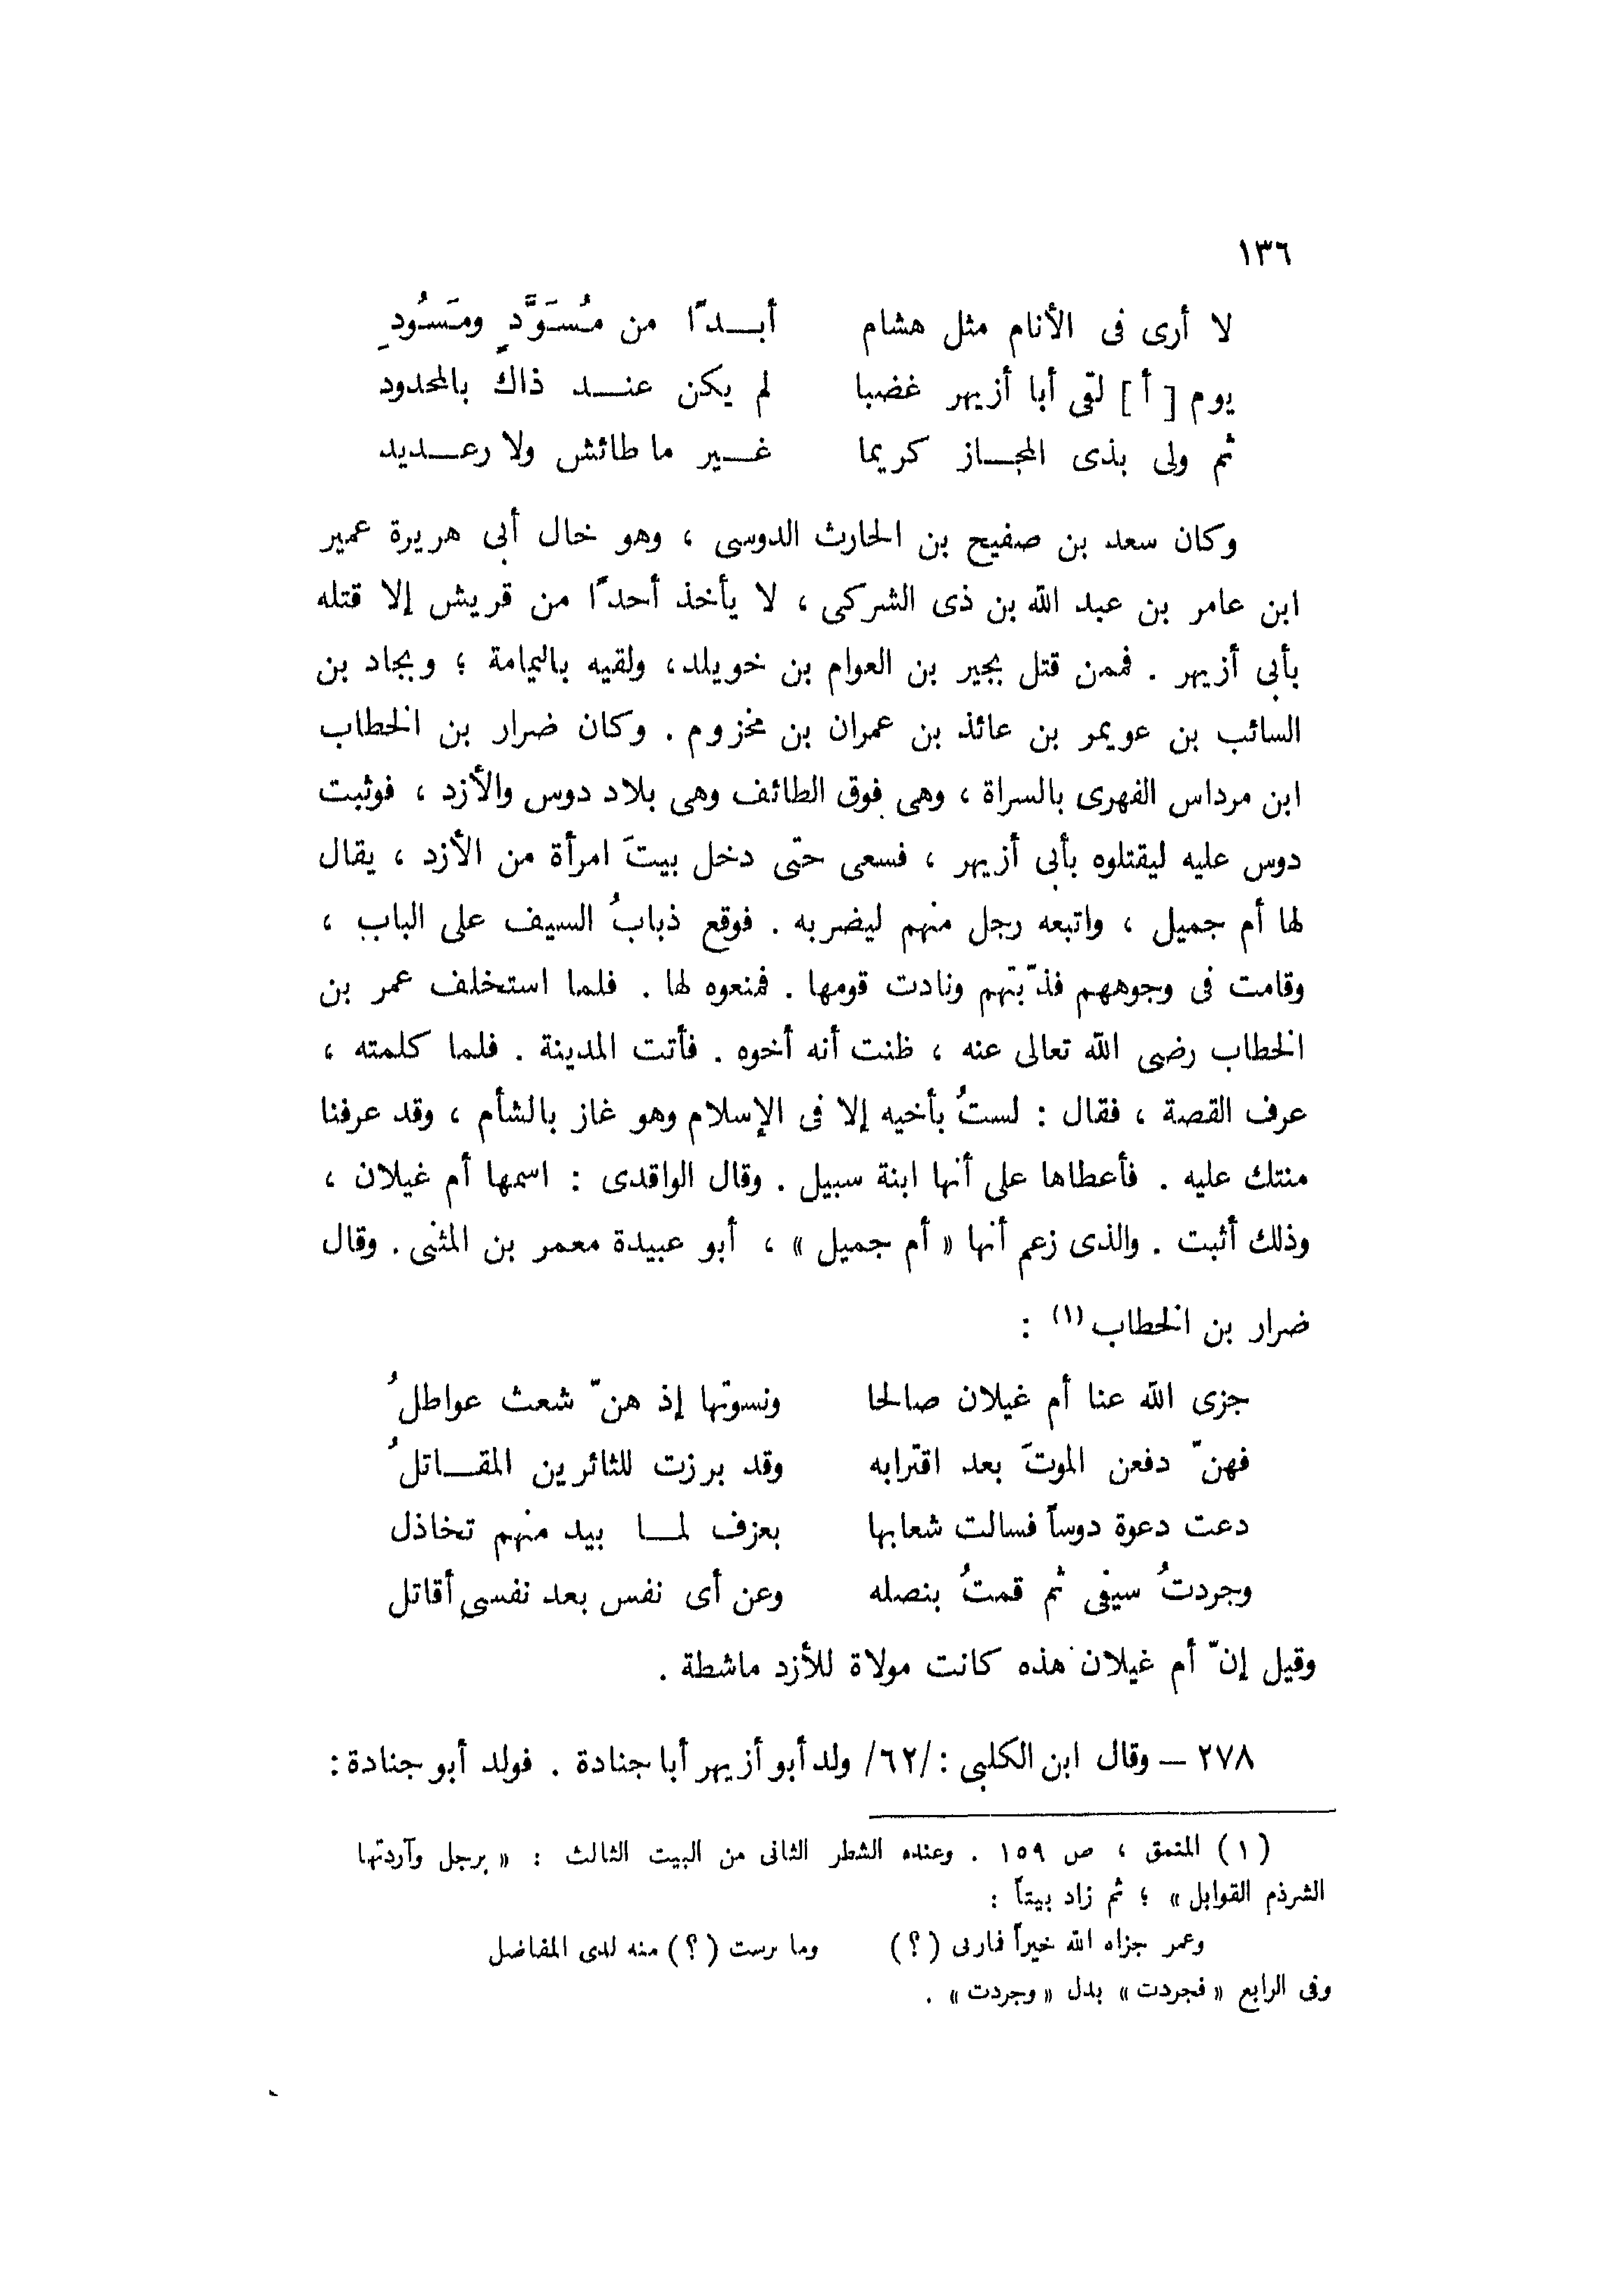 ١٣٦
لا أرى فى الأنام مثل هشام أبـدًا من مُسَوَّدٍ ومَسُودِ
يوم [ أ ] لتى أبا أزيهر غضبا لم يكن عنـد ذاك بالمحدود
ثم ولى بذى المجـاز كريما غـير ما طائش ولا رعـديد
وكان سعد بن صفيح بن الحارث الدوسى ، وهو خال أبى هريرة عمير
ابن عامر بن عبد الله بن ذى الشركى ، لا يأخذ أحدًا من قريش إلا قتله
بأبى أزيهر . فممن قتل بجير بن العوام بن خويلد، ولقيه باليمامة ؛ وبجاد بن
السائب بن عويمر بن عائذ بن عمران بن مخزوم . وكان ضرار بن الخطاب
ابن مرداس الفهرى بالسراة ، وهى فوق الطائف وهى بلاد دوس والأزد ، فوثبت
دوس عليه ليقتلوه بأبى أزيهر ، فسعى حتى دخل بيتَ امرأة من الأزد ، يقال
لها أم جميل ، واتبعه رجل منهم ليضربه . فوقع ذبابُ السيف على الباب ،
وقامت فى وجوههم فذبّتهم ونادت قومها . فمنعوه لها . فلما استخلف عمر بن
الخطاب رضى الله تعالى عنه ، ظنت أنه أخوه . فأتت المدينة . فلما كلمته ،
عرف القصة ، فقال : لستُ بأخيه إلا فى الإسلام وهو غاز بالشأم ، وقد عرفنا
منتك عليه . فأعطاها على أنها ابنة سبيل . وقال الواقدى : اسمها أم غيلان ،
وذلك أثبت . والذى زعم أنها « أم جميل » ، أبو عبيدة معمر بن المثنى . وقال
ضرار بن الخطاب (١) :
جزى الله عنا أم غيلان صالحا ونسوتها إذ هنّ شعث عواطلُ
فهنّ دفعن الموتَ بعد اقترابه وقد برزت للثائرين المقـاتلُ
دعت دعوة دوساً فسالت شعابها بعزف لمـا بيد منهم تخاذل
وجردتُ سيفى ثم قمتُ بنصله وعن أى نفس بعد نفسى أقاتل
وقيل إنّ أم غيلان هذه كانت مولاة للأزد ماشطة .
٢٧٨ – وقال ابن الكلبى : /٦٢/ ولد أبو أزيهر أبا جنادة . فولد أبو جنادة :
(١) المنمق ، ص ١٥٩ . وعنده الشطر الثانى من البيت الثالث : « برجل وآردتها
الشرذم القوابل » ؛ ثم زاد بيتاً :
وعمر جزاه الله خيراً فمارنى (؟) وما برست (؟) منه لدى المفاضل
وفى الرابع « فجردت » بدل « وجردت » .